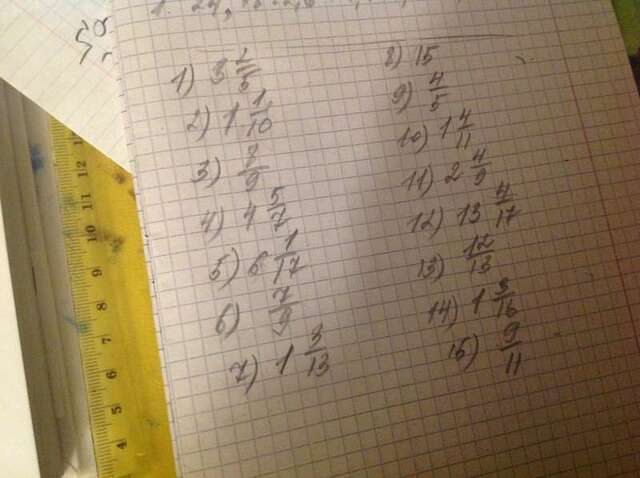 1) 3 2/5
2) 1 1/10
3) 7/9
4) 4 5/7
5) 6 1/17
6) 7/9
7) 1 3/13
8) 15
9) 4/5
10) 1 4/11
11) 2 4/9
12) 13 4/17
13) 12/13
14) 1 3/16
15) 9/11
12
11
10
9
8
7
6
5
4